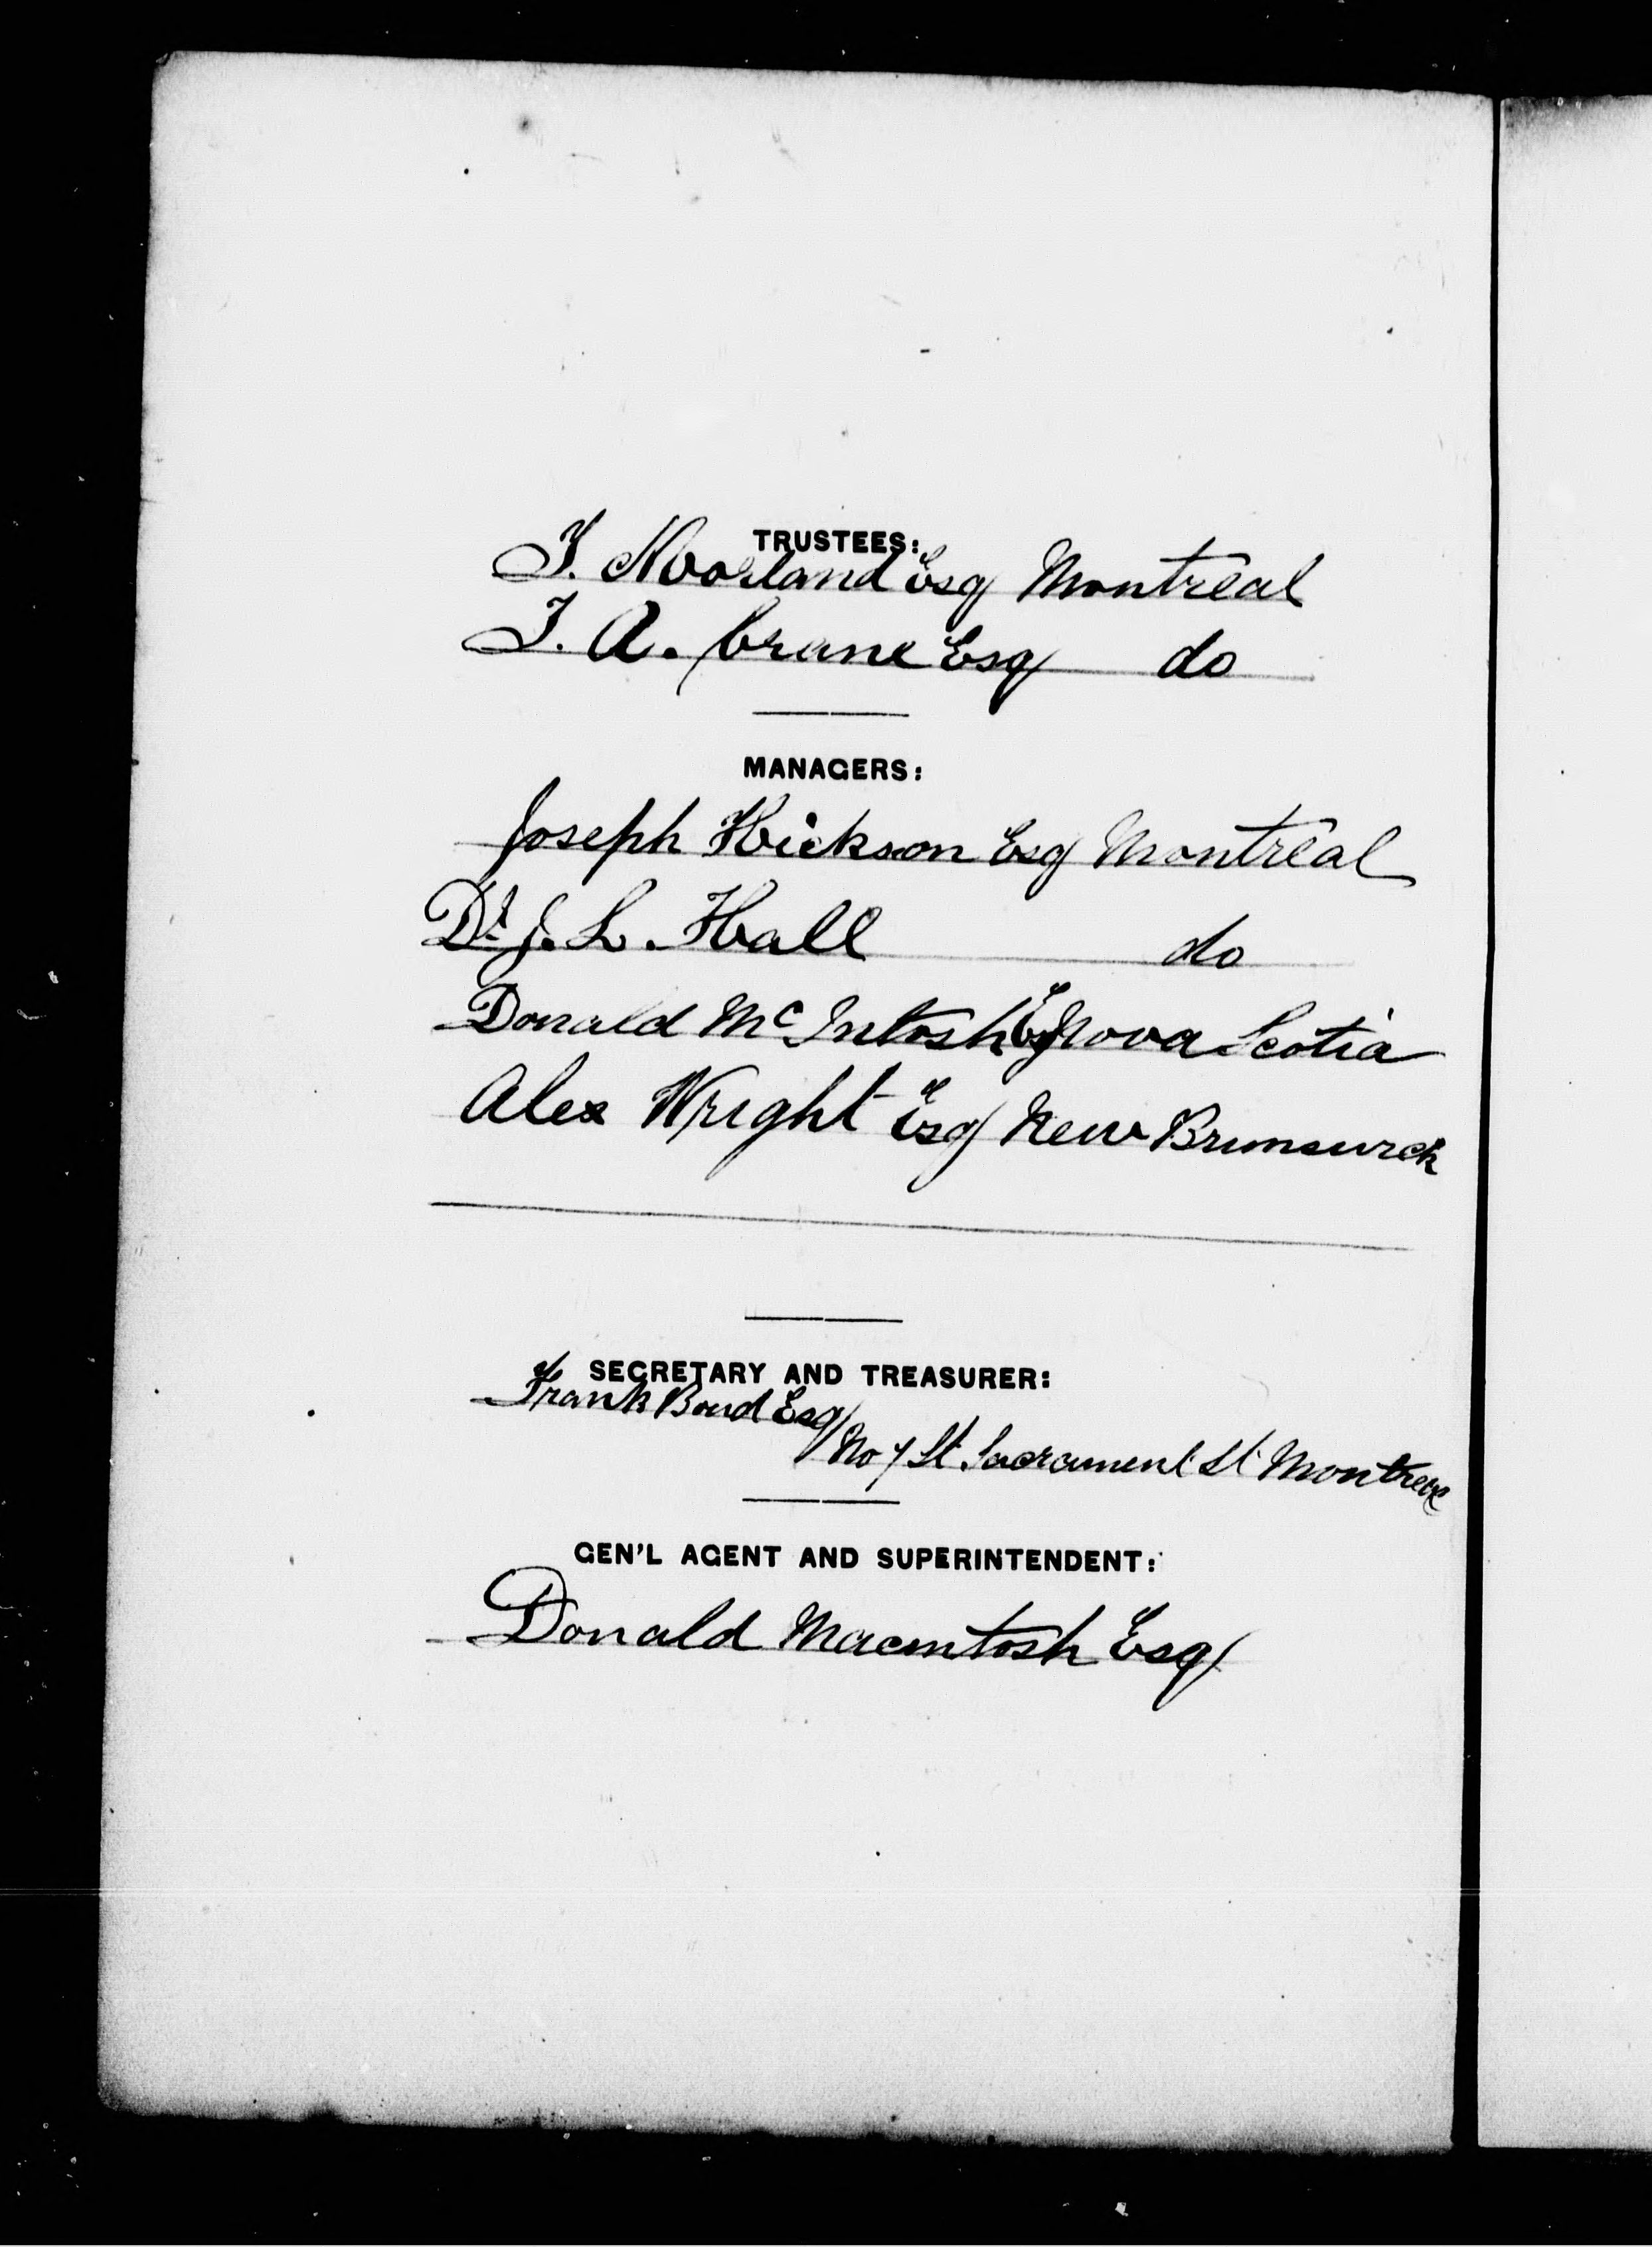 TRUSTEES:
T. Moorland Esq Montreal
T. A. Crane Esq do
MANAGERS:
Joseph Hickson Esq Montreal
Dr. J. L. Hall do
Donald Mc Intosh Esq Nova Scotia
Alex Wright Esq New Brunswick
SECRETARY AND TREASURER:
Frank Bond Esq
No 7 St. Sacrament St Montreal
GEN'L AGENT AND SUPERINTENDENT:
Donald Macintosh Esq